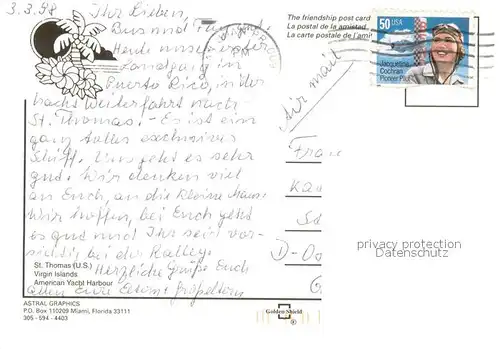 3.3.98
Ihr Lieben,
Bus und
Heute unser
Landgang in
Puerto Rico, in der
Nacht Weiterfahrt nach
St. Thomas! - Es ist ein
ganz tolles exclusives
Schiff. Uns geht es sehr
gut. Wir denken viel
an Euch, an die kleine Maus.
Wir hoffen, bei Euch geht
es gut und Ihr seid vor-
sichtig bei der Ralley.
Herzliche Grüße Euch
allen Eure Eltern + Großeltern
St. Thomas (U.S.)
Virgin Islands
American Yacht Harbour
ASTRAL GRAPHICS
P.O. Box 110209 Miami, Florida 33111
305 - 594 - 4403
The friendship post card
La postal de la amistad
La carte postale de l'ami
50 USA
Jacqueline
Cochran
Pioneer Pilot
Air mail
Frau
D-
privacy protection
Datenschutz
Golden Shield
®